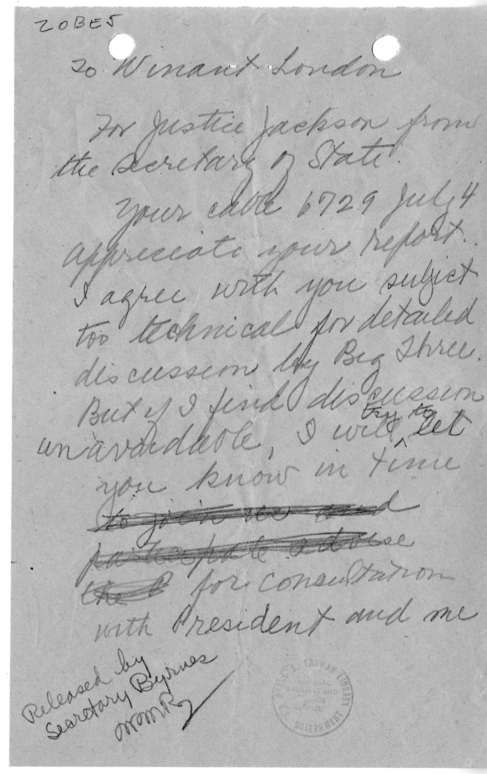 ZOBE5
To Winant London
For Justice Jackson from
the Secretary of State.
Your cable 6729 July 4
appreciate your report.
I agree with you subject
too technical for detailed
discussion by Big Three.
But if I find discussion
unavoidable, I will try to let
you know in time
to join me and
participate advise
the P for consultation
with President and me
Released by
Secretary Byrnes
HARRY S. TRUMAN LIBRARY
U.S. GOVERNMENT